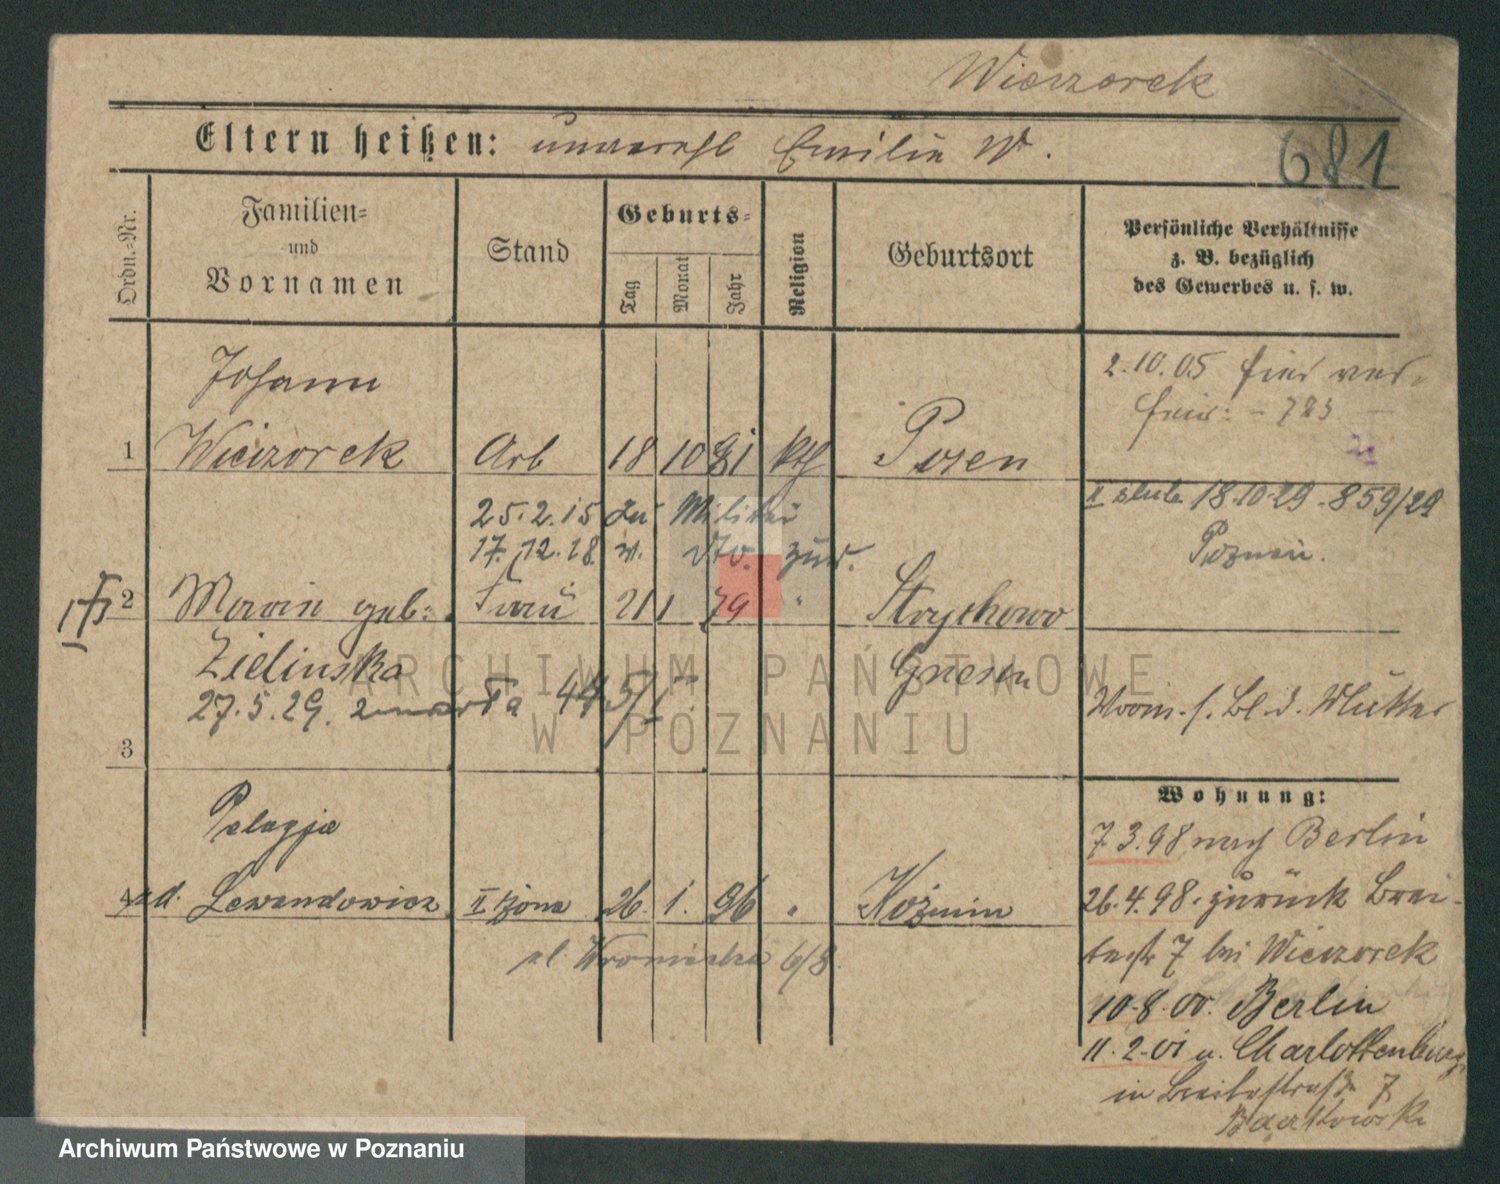 Wieczorek
Eltern heißen: unverehl Emilie W.
681
Ordn.-Nr.
Familien-
und
Vornamen
Stand
Geburts-
Tag
Monat
Jahr
Religion
Geburtsort
Persönliche Verhältnisse
z. B. bezüglich
des Gewerbes u. s. w.
Johann
1 Wieczorek Arb 18 10 81 kth Posen
2.10.05 hier ver-
heir: - 723
25.2.15 zu Militär
17.12.18. v. dto. zur.
II slub 18.10.29 - 859/29
Poznań.
2 Marie geb: Frau 21 1 79 " Strychowo
Zielinska Gnesen
27.5.29. zmarła
3
Vorm. s. Bl. d. Mutter
Pelagja
4 Lewandowicz II żona 26. 1. 96 " Koźmin
ul. Wroniecka 6/8.
Wohnung:
7.3.98 nach Berlin
26.4.98. zurück Brei-
testr 7 bei Wieczorek
10.8.00. Berlin
11.2.01 v. Charlottenburg
in Breitestraße 7
Bartkowski
ARCHIWUM PAŃSTWOWE
W POZNANIU
Archiwum Państwowe w Poznaniu